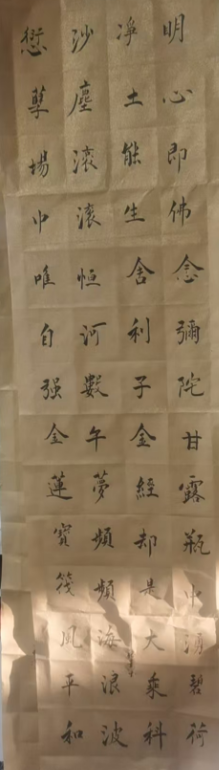 明心即佛念彌陀甘露瓶中湧碧荷
淨土能生舍利子金經却是大乘科
沙塵滚滚恒河數午夢頻頻海浪波
孽場中唯自强金蓮寳筏風平和